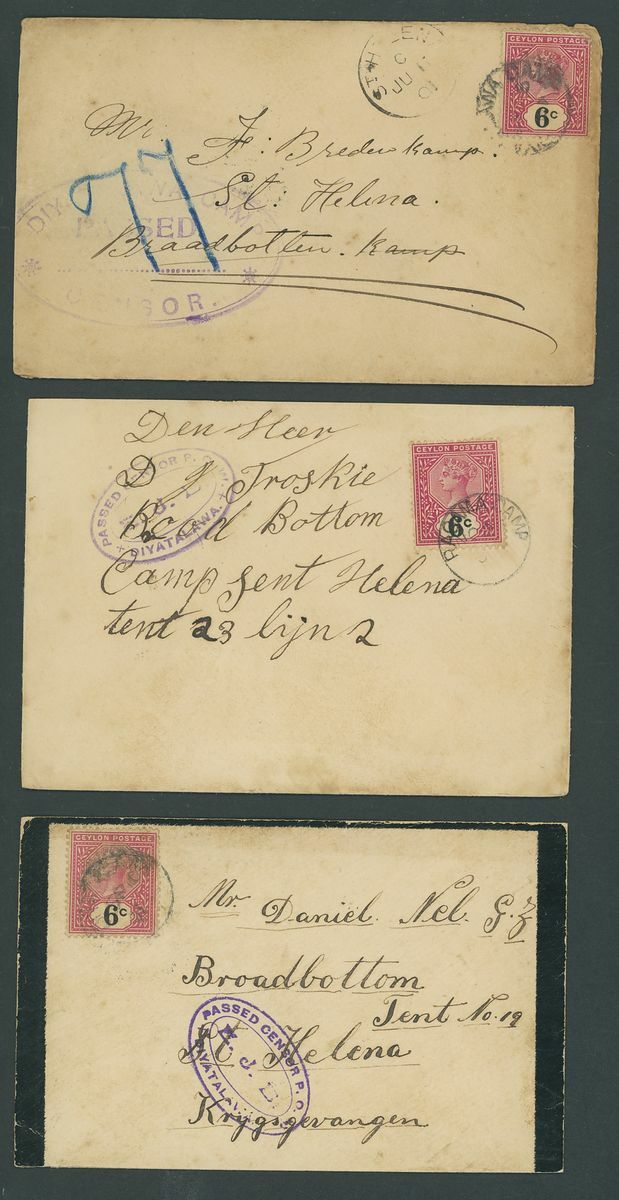 ST HELEN
CEYLON POSTAGE
WA CAMP
6c
Mr. F. Bredenkamp.
St. Helena.
Braadbotten. Kamp
77
DIY NA CAMP
PASSED
CENSOR.
Den Heer
D J Troskie
Bood Bottom
Camp Sent Helena
tent 23 lijn 2
PASSED CENSOR P.
DIYATALAWA.
CEYLON POSTAGE
6c
RAGAMA CAMP
CEYLON POSTAGE
6c
Mr. Daniel. Nel. G.Z
Broadbottom
Tent No. 19
St Helena
Krygsgevangen
PASSED CENSOR P. O.
J.
DIYATALAW